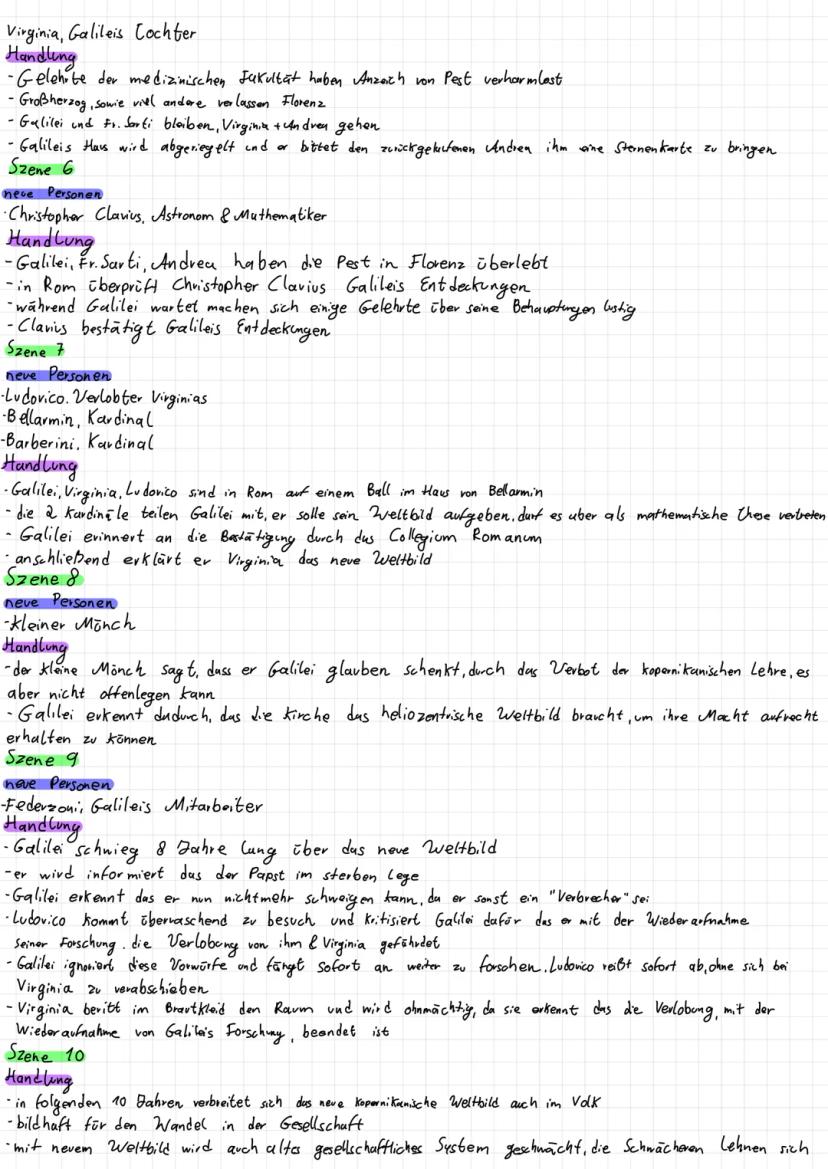 Virginia, Galileis Tochter
Handlung
- Gelehrte der medizinischen Fakultät haben Anzeich von Pest verharmlost
- Großherzog, sowie viel andere verlassen Florenz
- Galilei und Fr. Sarti bleiben, Virginia + Andrea gehen
- Galileis Haus wird abgeriegelt und er bittet den zurückgelaufenen Andrea ihm eine Sternenkarte zu bringen
Szene 6
neue Personen
- Christopher Clavius, Astronom & Mathematiker
Handlung
- Galilei, Fr. Sarti, Andrea haben die Pest in Florenz überlebt
- in Rom überprüft Christopher Clavius Galileis Entdeckungen
- während Galilei wartet machen sich einige Gelehrte über seine Behauptungen lustig
- Clavius bestätigt Galileis Entdeckungen
Szene 7
neue Personen
- Ludovico. Verlobter Virginias
- Bellarmin, Kardinal
- Barberini, Kardinal
Handlung
- Galilei, Virginia, Ludovico sind in Rom auf einem Ball im Haus von Bellarmin
- die 2 Kardinäle teilen Galilei mit, er solle sein Weltbild aufgeben, darf es aber als mathematische These vertreten
- Galilei erinnert an die Bestätigung durch das Collegium Romanum
- anschließend erklärt er Virginia das neue Weltbild
Szene 8
neue Personen
- kleiner Mönch
Handlung
- der kleine Mönch sagt, dass er Galilei glauben schenkt, durch das Verbot der kopernikanischen Lehre, es
aber nicht offenlegen kann
- Galilei erkennt dadurch, das die Kirche das heliozentrische Weltbild braucht, um ihre Macht aufrecht
erhalten zu können
Szene 9
neue Personen
- Federzoni, Galileis Mitarbeiter
Handlung
- Galilei schwieg 8 Jahre lang über das neue Weltbild
- er wird informiert das der Papst im sterben lege
- Galilei erkennt das er nun nichtmehr schweigen kann, da er sonst ein "Verbrecher" sei
- Ludovico kommt überraschend zu besuch und kritisiert Galilei dafür das er mit der Wiederaufnahme
seiner Forschung. die Verlobung von ihm & Virginia gefährdet
- Galilei ignoriert diese Vorwürfe und fängt sofort an weiter zu forschen. Ludovico reißt sofort ab, ohne sich bei
Virginia zu verabschieben
- Virginia beritt im Brautkleid den Raum und wird ohnmächtig, da sie erkennt das die Verlobung, mit der
Wiederaufnahme von Galileis Forschung, beendet ist
Szene 10
Handlung
- in folgenden 10 Jahren verbreitet sich das neue kopernikanische Weltbild auch im Volk
- bildhaft für den Wandel in der Gesellschaft
- mit neuem Weltbild wird auch altes gesellschaftliches System geschwächt, die Schwächeren lehnen sich